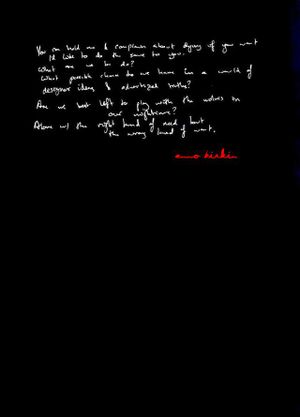 You can hold me & complain about dying if you want
I'd like to do the same to you.
What are we to do?
What possible chance do we have in a world of
designer ideas & advertized truths?
Are we best left to play with the wolves in
our nightmare?
Alone w/ the right hand of need but
the wrong hand of want.